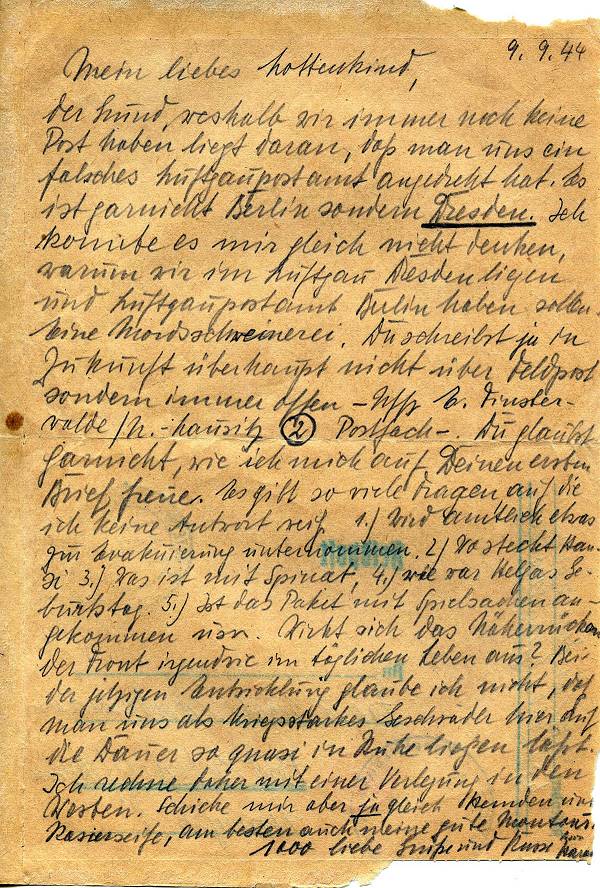 9. 9. 44
Mein liebes Lottenkind,
der Grund, weshalb wir immer noch keine
Post haben liegt daran, daß man uns ein
falsches Luftgaupostamt angedreht hat. Es
ist garnicht Berlin sondern Dresden. Ich
konnte es mir gleich nicht denken,
warum wir im Luftgau Dresden liegen
und Luftgaupostamt Berlin haben sollen.
Eine Mordsschweinerei. Du schreibst ja in
Zukunft überhaupt nicht über Feldpost
sondern immer offen - Uffz B. Finster-
walde /N.-Lausitz ② Postfach -. Du glaubst
garnicht, wie ich mich auf Deinen ersten
Brief freue. Es gibt so viele Fragen auf die
ich keine Antwort weiß 1.) Wird amtlich etwas
zur Evakuierung unternommen. 2.) Wo steckt Han-
si 3.) Was ist mit Spinat, 4.) wie war Helgas Ge-
burtstag. 5.) Ist das Paket mit Spielsachen an-
gekommen usw. Wirkt sich das Näherrücken
der Front irgendwie im täglichen Leben aus? Bei
der jetzigen Entwicklung glaube ich nicht, daß
man uns als kriegsstarkes Geschwader hier auf
die Dauer so quasi in Ruhe liegen läßt.
Ich rechne daher mit einer Verlegung in den
Westen. Schicke mir aber ja gleich Hemden und
Rasierseife, am besten auch meine gute
1000 liebe Grüße und Küsse